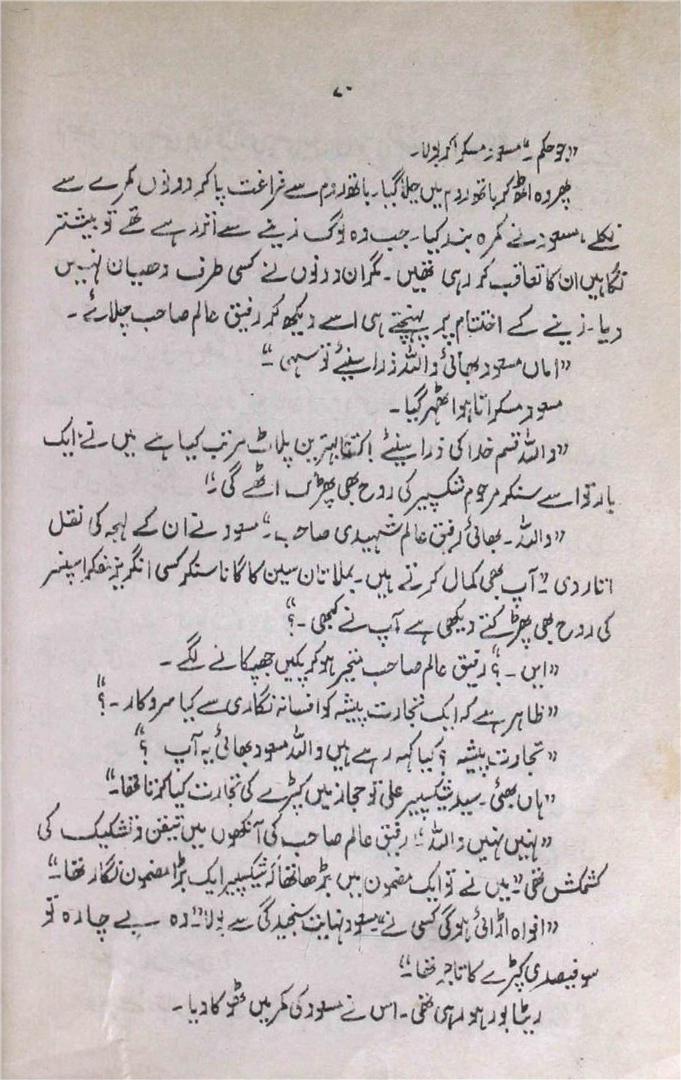 ۷۰
"جو حکم۔" مسعود مسکرا کر بولا۔
پھر وہ اٹھ کر باتھ روم میں چلا گیا۔ باتھ روم سے فراغت پا کر دونوں کمرے سے
نکلے، مسعود نے کمرہ بند کیا۔ جب وہ لوگ زینے سے اتر رہے تھے تو بیشتر
نگاہیں ان کا تعاقب کر رہی تھیں۔ مگر ان دونوں نے کسی طرف دھیان نہیں
دیا۔ زینے کے اختتام پر پہنچتے ہی اسے دیکھ کر رفیق عالم صاحب چلائے۔
"اماں مسعود بھائی واللہ ذرا سنیئے تو سہی۔"
مسعود مسکراتا ہوا ٹھہر گیا۔
"واللہ قسم خدا کی ذرا سنیئے! کتنا بہترین پلاٹ مرتب کیا ہے میں نے، ایک
بار تو اسے سنکر مرحوم شکسپیر کی روح بھی پھڑک اٹھے گی۔"
"واللہ۔ بھائی رفیق عالم شہیدی صاحب۔" مسعود نے ان کے لہجہ کی نقل
اتار دی "آپ بھی کمال کرتے ہیں۔ بھلا تان سین کا گانا سنکر کسی انگریز مفکر اسپنسر
کی روح بھی پھڑکتے دیکھی ہے آپ نے کبھی۔؟"
"ایں۔؟" رفیق عالم صاحب متحیر ہو کر پلکیں جھپکانے لگے۔
"ظاہر ہے کہ ایک تجارت پیشہ کو افسانہ نگاری سے کیا سروکار۔؟"
"تجارت پیشہ؟ کیا کہہ رہے ہیں واللہ مسعود بھائی یہ آپ ؟"
"ہاں بھئی۔ سید شیکسپیر علی تو حجاز میں کپڑے کی تجارت کیا کرتا تھا۔"
"نہیں نہیں واللہ۔" رفیق عالم صاحب کی آنکھوں میں تیقن و تشکیک کی
کشمکش تھی "میں نے تو ایک مضمون میں پڑھا تھا کہ شیکسپیر ایک بڑا مضمون نگار تھا۔"
"افواہ اڑائی ہوگی کسی نے" مسعود نہایت سنجیدگی سے بولا "وہ بے چارہ تو
سو فیصدی کپڑے کا تاجر تھا۔"
ریٹا بور ہو رہی تھی۔ اس نے مسعود کی کمر میں ٹھوکا دیا۔